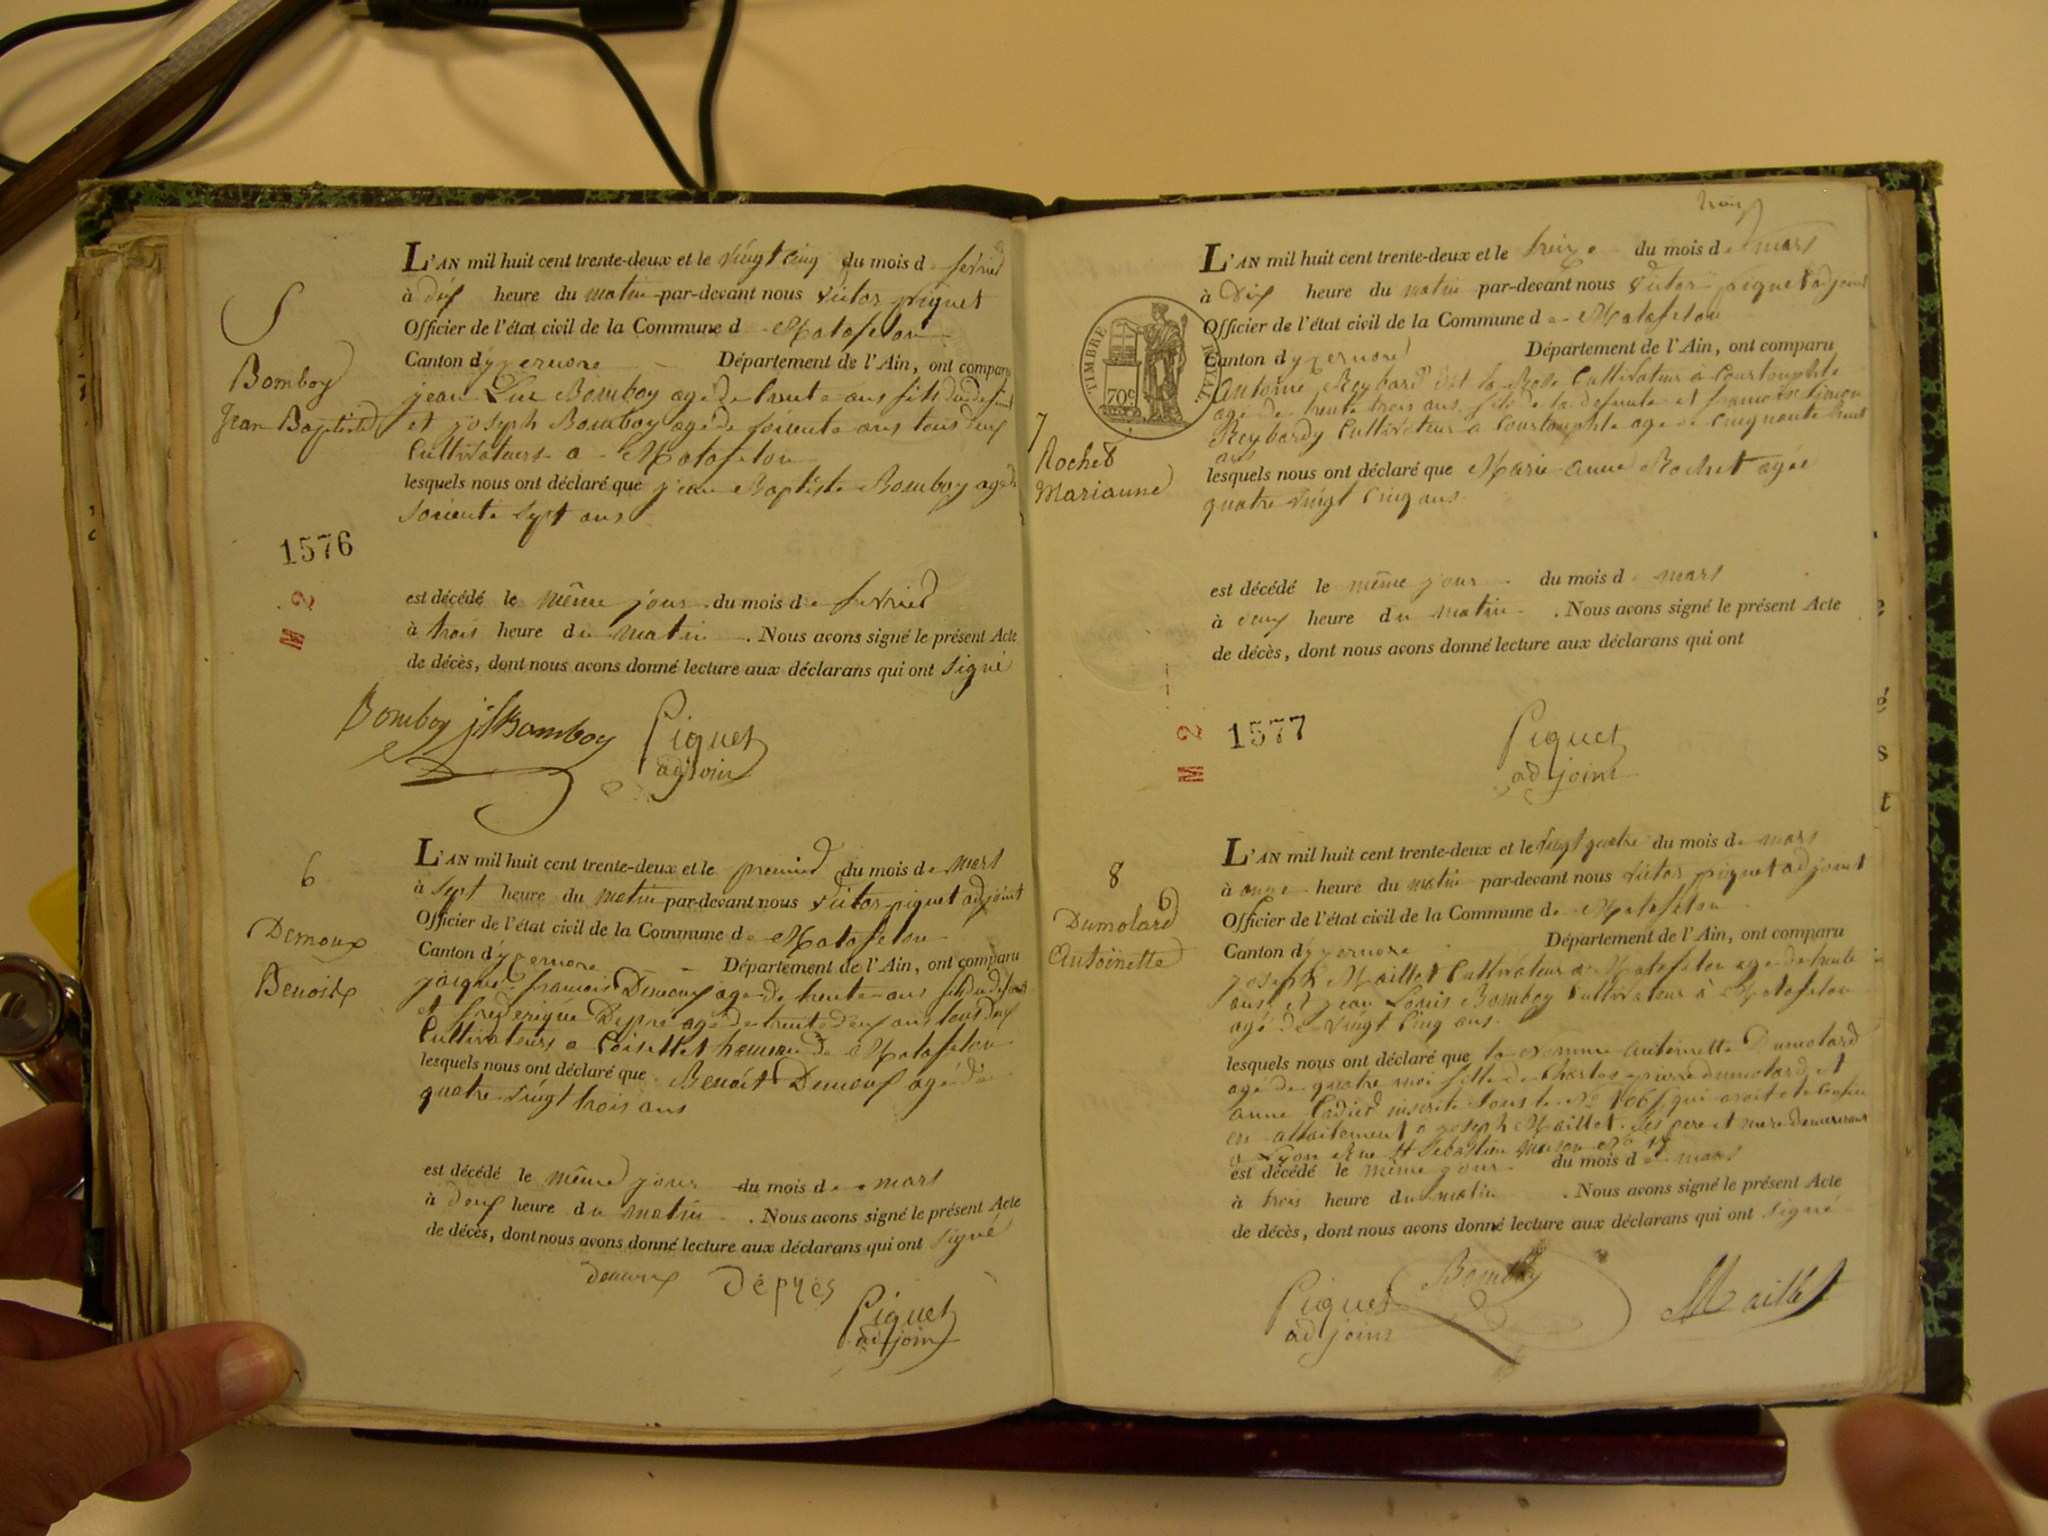 5
Bomboy
Jean Baptiste
L'AN mil huit cent trente-deux et le vingt cinq du mois de fevrier
à dix heure du matin par-devant nous victor piquet
Officier de l'état civil de la Commune de Matafelon
Canton dyzernore Département de l'Ain, ont comparu
jean Luc Bomboy agé de trente ans fils du defunt
et joseph Bomboy agé de soixente ans tous deux
Cultivateurs a Matafelon
lesquels nous ont déclaré que jean Baptiste Bomboy agé de
soixente sept ans
1576
M 2
est décédé le même jour du mois de fevrier
à trois heure du matin. Nous avons signé le présent Acte
de décès, dont nous avons donné lecture aux déclarans qui ont signé
Bomboy jh Bomboy Piquet
adjoint
6
Demoux
Benoit
L'AN mil huit cent trente-deux et le premier du mois de mars
à sept heure du matin par-devant nous victor piquet adjoint
Officier de l'état civil de la Commune de Matafelon
Canton dyzernore Département de l'Ain, ont comparu
jacque francois Demoux agé de trente ans fils du defunt
et frederique Depre agé de trente deux ans tous deux
Cultivateurs a Coisellet hameau de Matafelon
lesquels nous ont déclaré que Benoit Demoux agé de
quatre vingt trois ans
est décédé le même jour du mois de mars
à deux heure du matin. Nous avons signé le présent Acte
de décès, dont nous avons donné lecture aux déclarans qui ont signé
demoux Dépres Piquet
adjoint
TIMBRE ROYAL
70c
7
Rochet
Marianne
L'AN mil huit cent trente-deux et le treize du mois de mars
à dix heure du matin par-devant nous victor piquet adjoint
Officier de l'état civil de la Commune de Matafelon
Canton dyzernore Département de l'Ain, ont comparu
Antoine Reybard dit la Rose Cultivateur à Courtouphle
agé de trente trois ans fils de la defunte et francois Simon
Reybardy Cultivateur a Courtouphle agé de cinquante huit
ans
lesquels nous ont déclaré que Marie anne Rochet agée
quatre vingt cinq ans
est décédé le même jour du mois de mars
à deux heure du matin. Nous avons signé le présent Acte
de décès, dont nous avons donné lecture aux déclarans qui ont
M 2
1577
Piquet
adjoint
8
Dumolard
Antoinette
L'AN mil huit cent trente-deux et le vingt quatre du mois de mars
à onze heure du matin par-devant nous victor piquet adjoint
Officier de l'état civil de la Commune de Matafelon
Canton dyzernore Département de l'Ain, ont comparu
joseph Maillet Cultivateur a Matafelon agé de trente
ans et jean Louis Bomboy Cultivateur à Matafelon
agé de vingt cinq ans
lesquels nous ont déclaré que la nomme antoinette Dumolard
agé de quatre moi fille de Charles pierre dumolard et
anne Cadier inscrite sous le No qui avoit ete
en allaitement a joseph Maillet. Ses pere et mere demeurant
a Lyon Rue St Sebastien maison No
est décédé le même jour du mois de mars
à trois heure du matin. Nous avons signé le présent Acte
de décès, dont nous avons donné lecture aux déclarans qui ont signé
Piquet Bomboy Maillet
adjoint